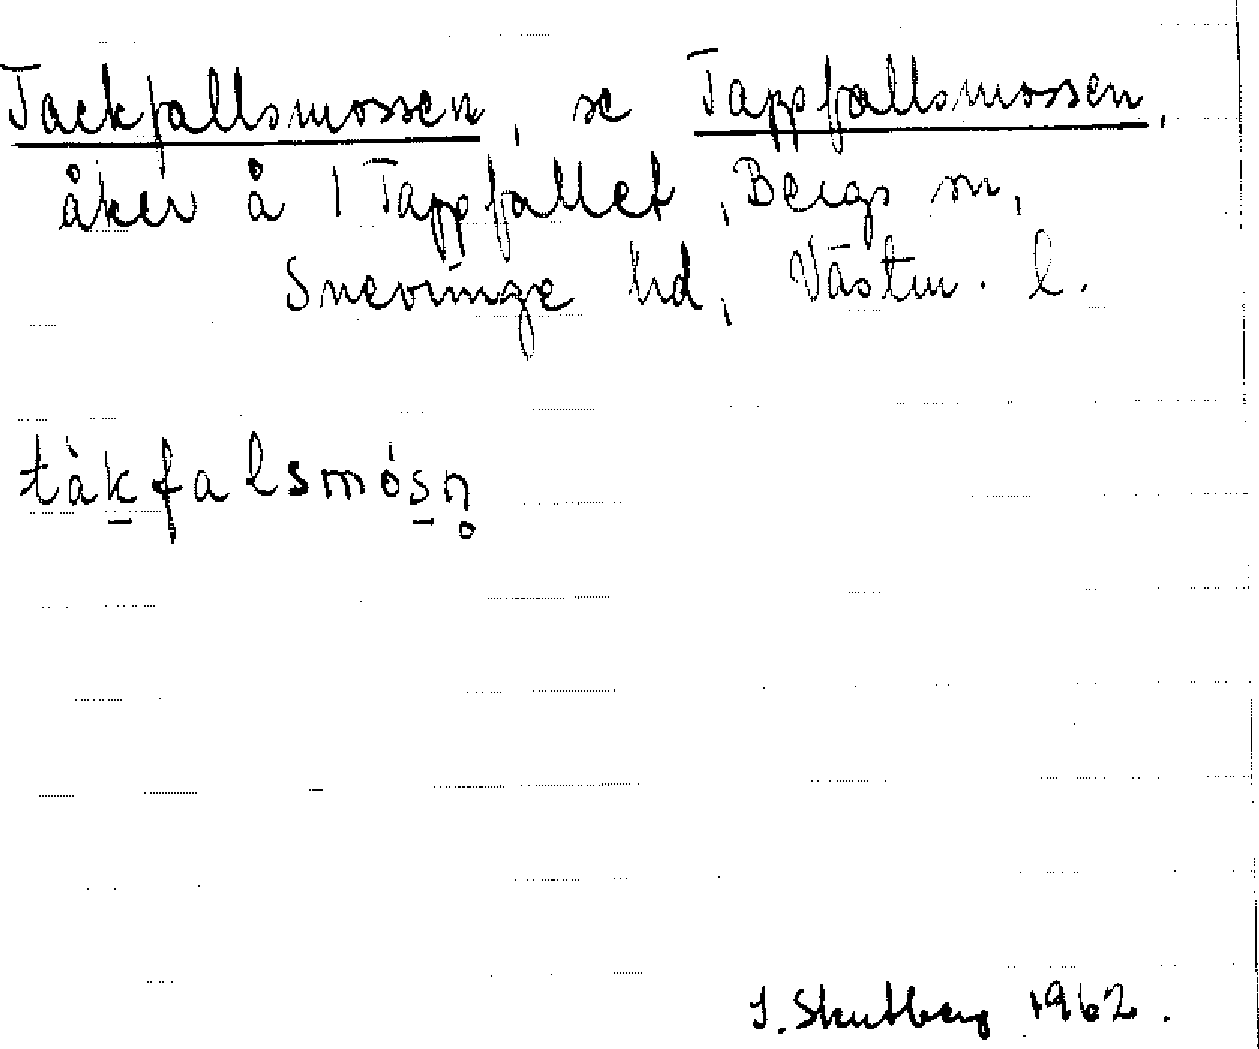 Tackfallsmossen, se Tappfallsmossen,
åker å 1 Tappfallet, Bergs sn,
Snevringe hd, Västm. l.
tàk̠falsmós̠n̥
S. Skutberg 1962.